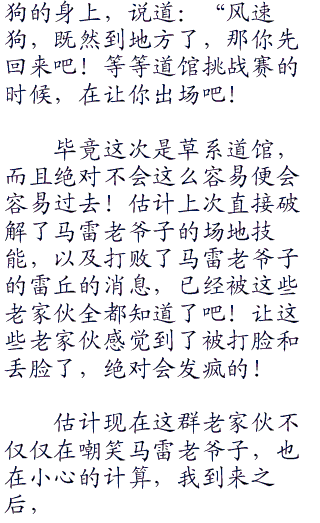 狗的身上，说道：“风速
狗，既然到地方了，那你先
回来吧！等等道馆挑战赛的
时候，在让你出场吧！
毕竟这次是草系道馆，
而且绝对不会这么容易便会
容易过去！估计上次直接破
解了马雷老爷子的场地技
能，以及打败了马雷老爷子
的雷丘的消息，已经被这些
老家伙全都知道了吧！让这
些老家伙感觉到了被打脸和
丢脸了，绝对会发疯的！
估计现在这群老家伙不
仅仅在嘲笑马雷老爷子，也
在小心的计算，我到来之
后，